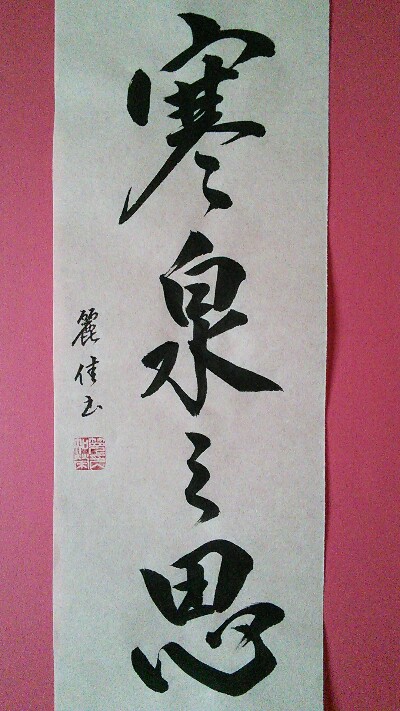 寒泉之思
麗佳书